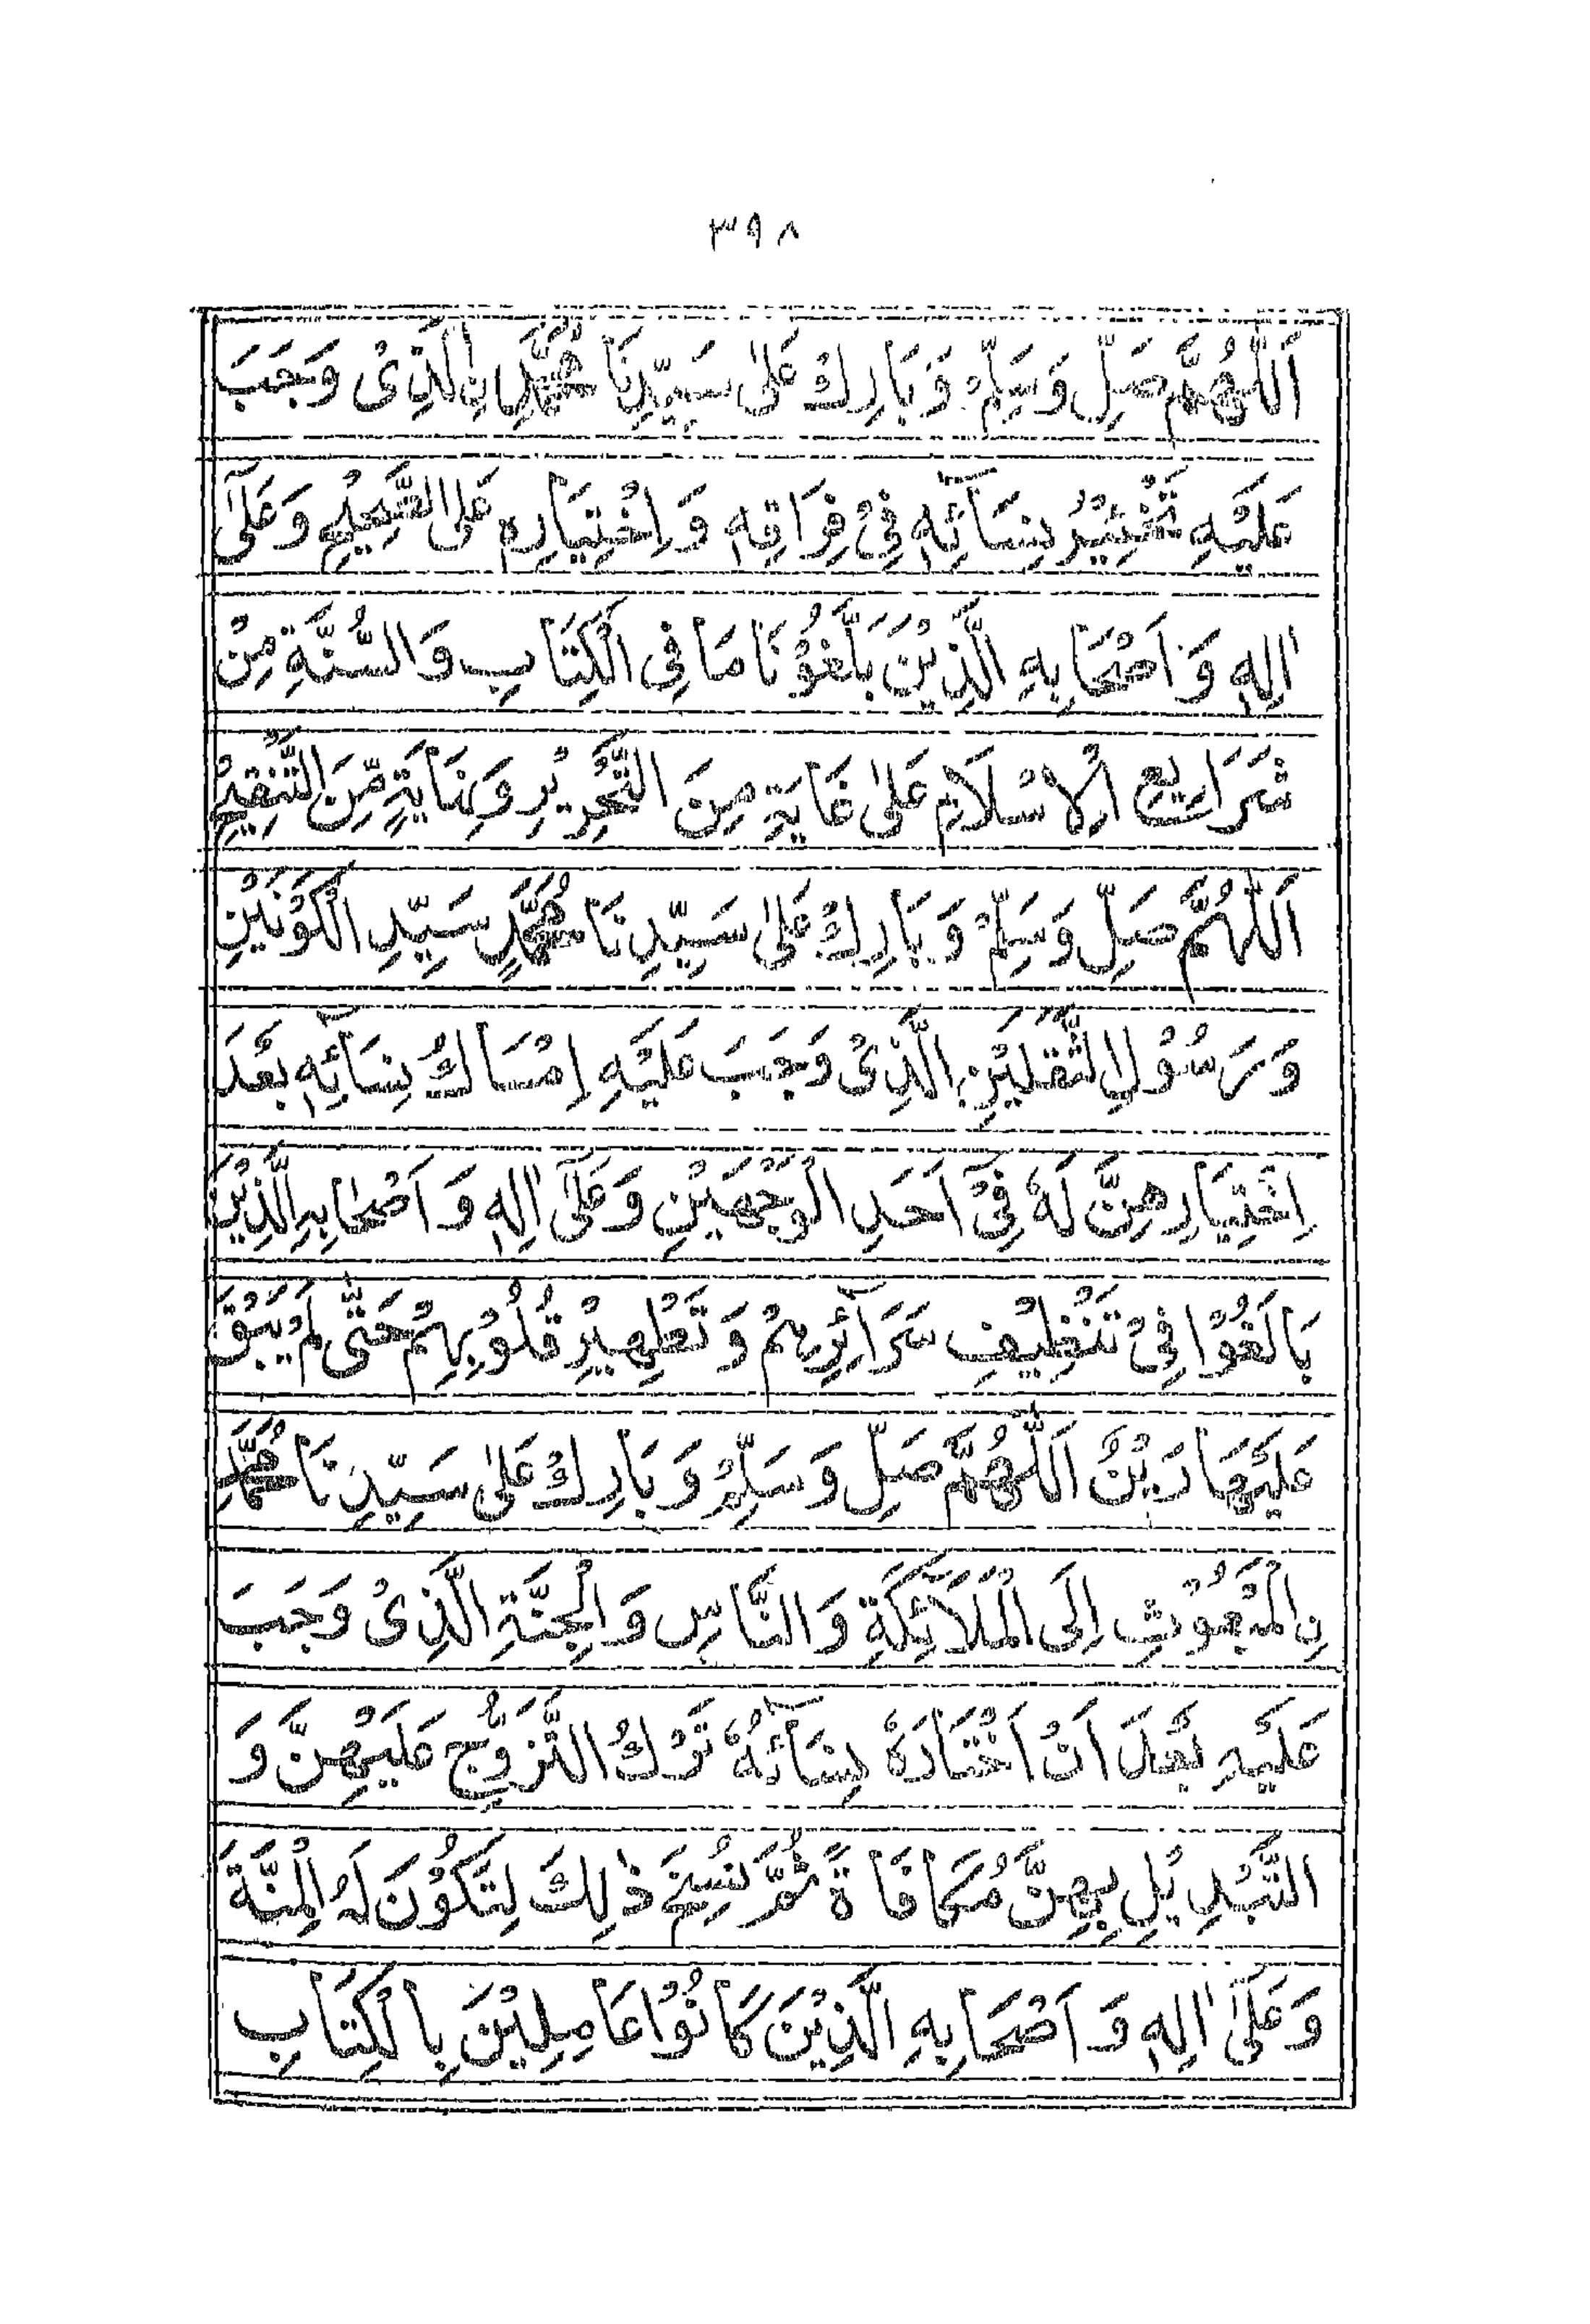 ٣٩٨
اَللّٰهُمَّ صَلِّ وَسَلِّمْ وَبَارِكْ عَلٰى سَيِّدِنَا مُحَمَّدِ نِالَّذِىْ وَجَبَ
عَلَيْهِ تَخْيِيْرُ نِسَآئِهٖ فِىْ فِرَاقِهٖ وَاِخْتِيَارِهٖ عَلَى الصَّحِيْحِ وَعَلٰٓى
اٰلِهٖ وَاَصْحَابِهِ الَّذِيْنَ بَلَّغُوْنَا مَا فِى الْكِتَابِ وَالسُّنَّةِ مِنْ
شَرَايِعِ الْاِسْلَامِ عَلٰى غَايَةٍ مِنَ التَّحْرِيْرِ وَنِهَايَةٍ مِّنَ التَّنْقِيْحِ
اَللّٰهُمَّ صَلِّ وَسَلِّمْ وَبَارِكْ عَلٰى سَيِّدِنَا مُحَمَّدٍ سَيِّدِ الْكَوْنَيْنِ
وَرَسُوْلِ الثَّقَلَيْنِ الَّذِىْ وَجَبَ عَلَيْهِ اِمْسَاكُ نِسَآئِهٖ بَعْدَ
اِخْتِيَارِهِنَّ لَهٗ فِىْٓ اَحَدِ الْوَجْهَيْنِ وَعَلٰٓى اٰلِهٖ وَاَصْحَابِهِ الَّذِيْنَ
بَالَغُوْا فِىْ تَنْظِيْفِ سَرَآئِرِهِمْ وَتَطْهِيْرِ قُلُوْبِهِمْ حَتّٰى لَمْ يَبْقَ
عَلَيْهَا رَيْنٌ اَللّٰهُمَّ صَلِّ وَسَلِّمْ وَبَارِكْ عَلٰى سَيِّدِنَا مُحَمَّدِ
نِ الْمَبْعُوْثِ اِلَى الْمَلَآئِكَةِ وَالنَّاسِ وَالْجِنَّةِ الَّذِىْ وَجَبَ
عَلَيْهِ بَعْدَ اَنْ اَخْتَارَهٗ نِسَآئُهٗ تَرْكُ التَّزَوُّجِ عَلَيْهِنَّ وَ
التَّبْدِيْلِ بِهِنَّ مُكَافَاةً ثُمَّ نُسِخَ ذٰلِكَ لِتَكُوْنَ لَهُ الْمِنَّةَ
وَعَلٰٓى اٰلِهٖ وَاَصْحَابِهِ الَّذِيْنَ كَانُوْا عَامِلِيْنَ بِالْكِتَابِ